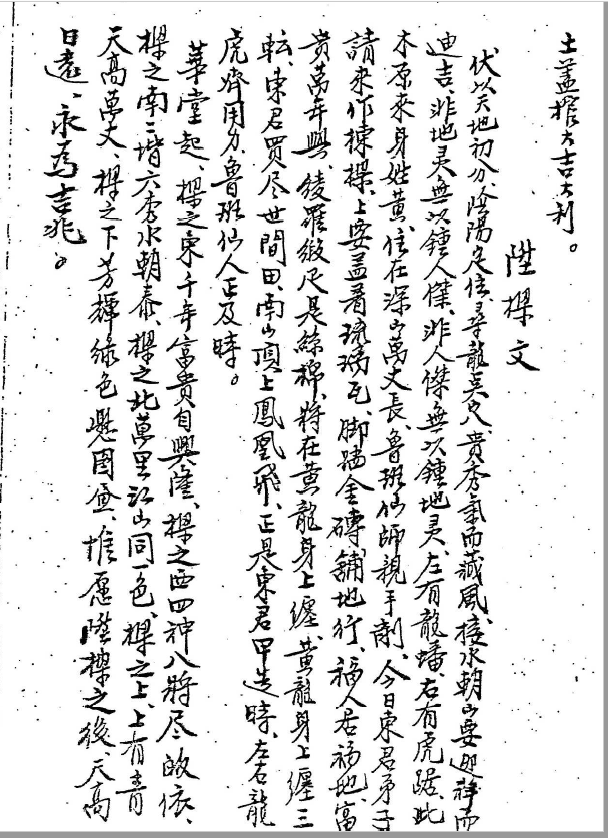 土盖撐大吉大利。
陞樑文
伏以天地初分、陰陽定位、尋龍奌穴、貴秀氣而藏風、接水朝山、要迎祥而
迪吉、非地灵無以鍾人傑、非人傑無以鍾地灵、左有龍蟠、右有虎踞、此
木原來身姓黃、住在深山萬丈長、魯班仙師親手削、今日東君弟子
請來作棟樑、上要盖着琉璃瓦、脚踏金磚舖地行、福人居福地、富
貴萬年興、綾羅緞尺是絲棉、將在黃龍身上纏、黃龍身上纏三
転、東君買尽世間田、南山頂上鳳凰飛、正是東君甲造時、左右龍
虎齊用力、魯班仙人正及時。
華堂起、樑之東千年富貴自興隆、樑之西四神八將尽皈依、
樑之南二堦六秀水朝泰、樑之北萬里江山同一色、樑之上、上有青
天高萬丈、樑之下芳輝綠色、惟愿陞樑之後、天高
日遠、永為吉兆。